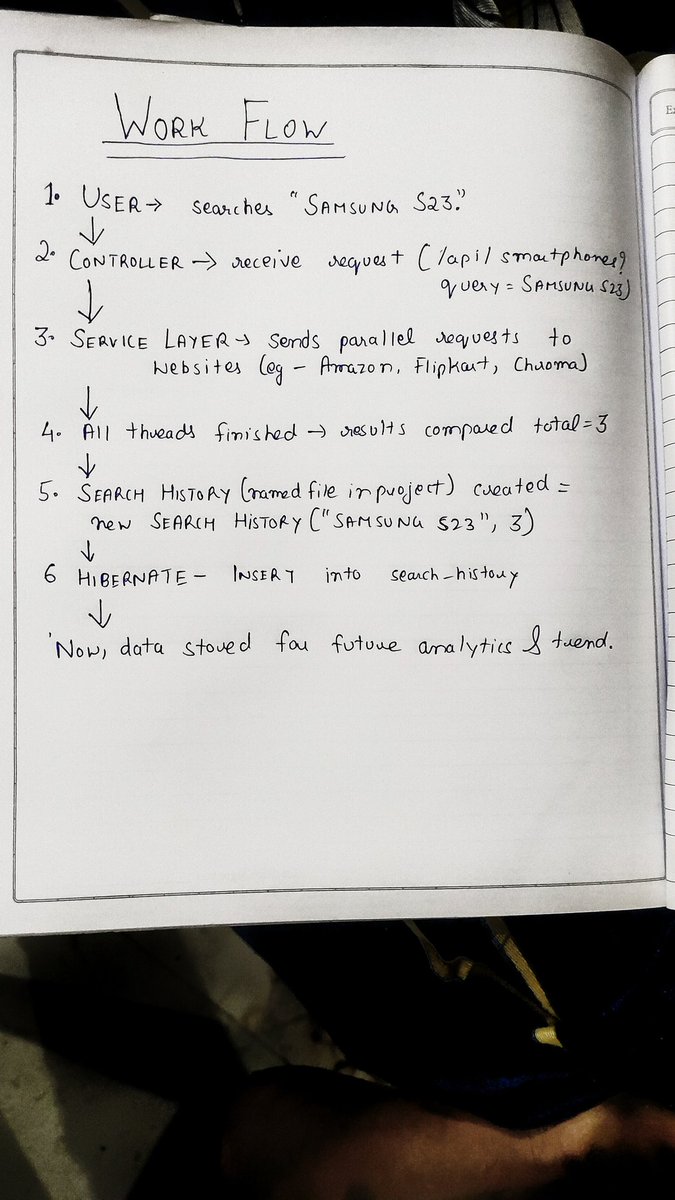 WORK FLOW
1. USER → searches "SAMSUNG S23."
↓
2. CONTROLLER → receive request (/api/smartphones?
query = SAMSUNG S23)
↓
3. SERVICE LAYER → Sends parallel requests to
websites (eg - Amazon, Flipkart, Chroma)
↓
4. All threads finished → results compared total = 3
↓
5. SEARCH HISTORY (named file in project) created =
new SEARCH HISTORY ("SAMSUNG S23", 3)
↓
6 HIBERNATE - INSERT into search_history
↓
'Now, data stored for future analytics & trend.